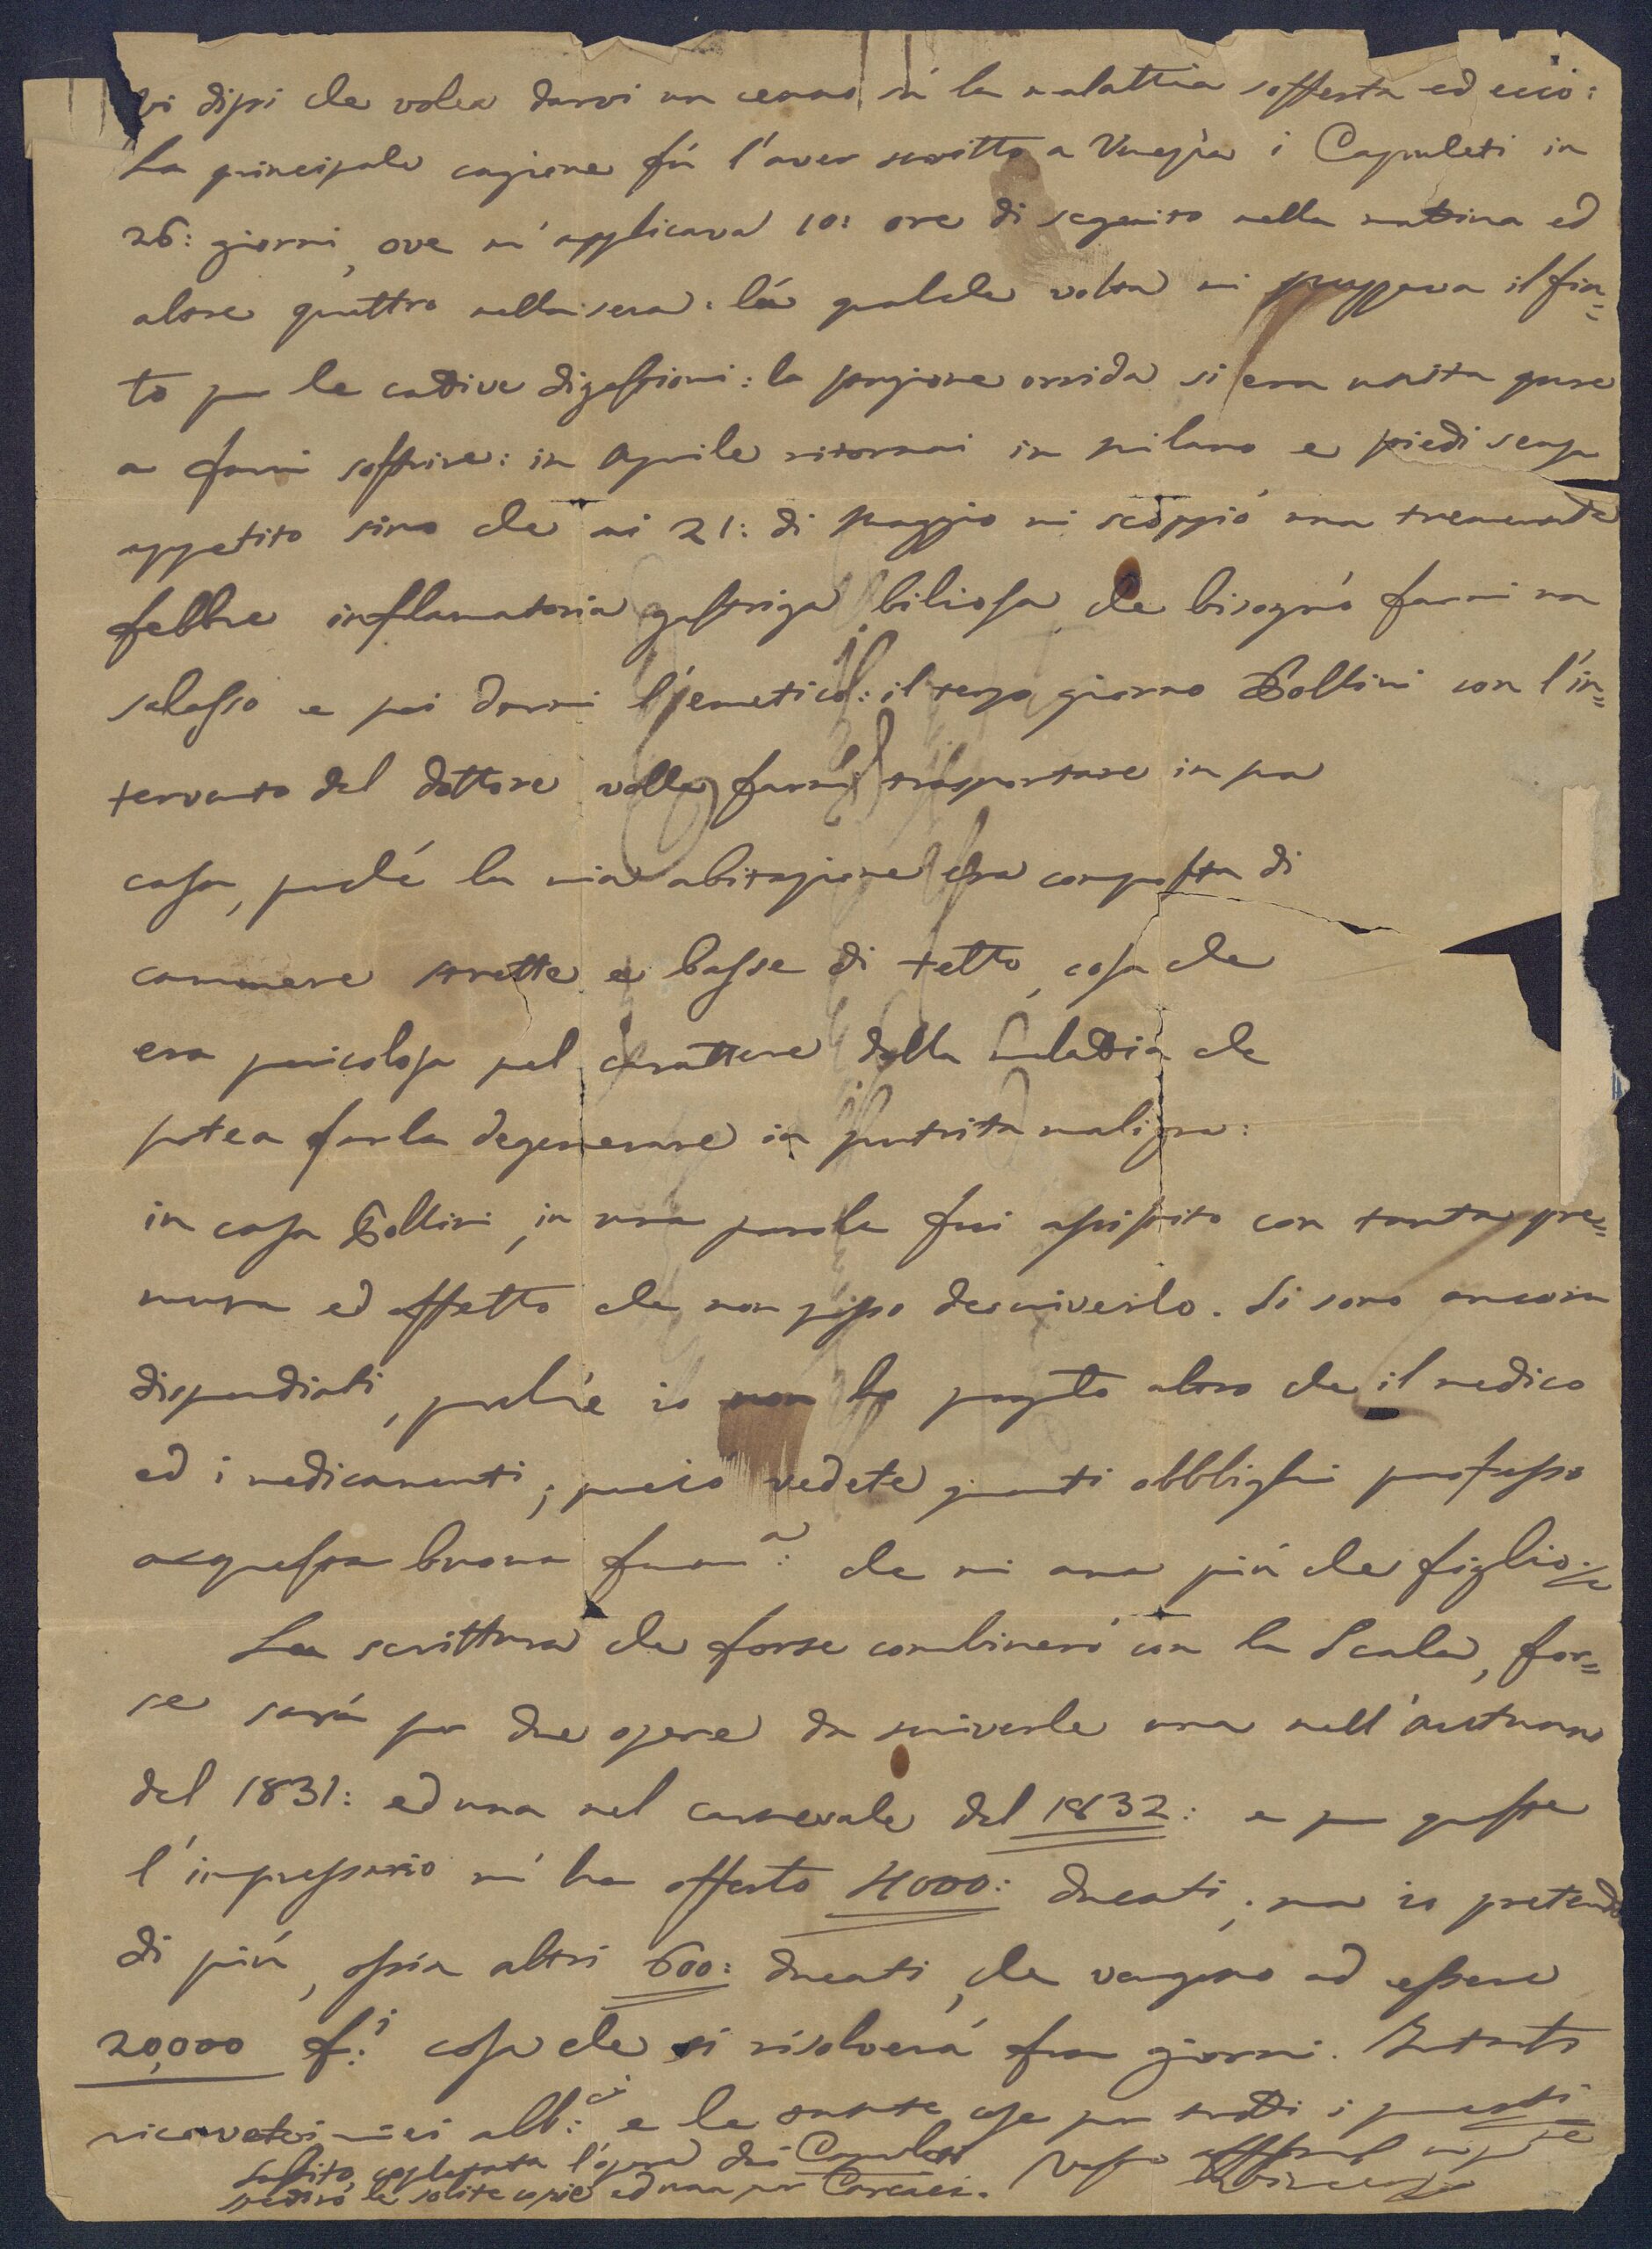 Vi dissi che volea darvi un cenno sú la malattia sofferta ed ecco:
La principale cagione fú l'aver scritto a Venezia i Capuleti in
26: giorni, ove m'applicava 10: ore di seguito nella mattina ed
altre quattro nella sera: lá qualche volta mi puzzava il fia=
to per le cattive digestioni: la stagione orrida si era unita pure
a farmi soffrire: in Aprile ritornai in Milano e stiedi senza
appetito sino che ai 21: di Maggio mi scoppió una tremenda
febbre inflamatoria gastriga biliosa, che bisognó farmi un
salasso e poi darmi l'emetico: il terzo giorno Pollini con l'in=
tervento del dottore volle farmi trasportare in sua
casa, perché la mia abitazione era composta di
cammere strette e basse di tetto, cosa che
era pericolosa pel carattere della malattia che
potea farla degenerare in putrita maligna:
in casa Pollini, in una parola fui assistito con tanta pre=
mura ed affetto che non posso descriverlo. Si sono ancora
dispendiati, perché io non ho pagato altro che il medico
ed i medicamenti; perció vedete quanti obblighi professo
a questa buona fam.a: che mi ama piú che figlio.
La scrittura che forse combineró con la Scala, for=
se sará per due opere da scriverle una nell'Autunno
del 1831: ed una nel carnevale del 1832: e per queste
l'impressario m'ha offerto 4000: ducati; ma io pretendo
di piú, ossia altri 600: ducati, che vengono ad essere
20,000 f.i: cosa che si risolverá fra giorni. Intanto
ricevete i miei abb:ci e le tante cose per tutti i parenti
Subito copiata l'opera dei Capuleti Vostro
spediró le solite copie ed una per Carcaci.